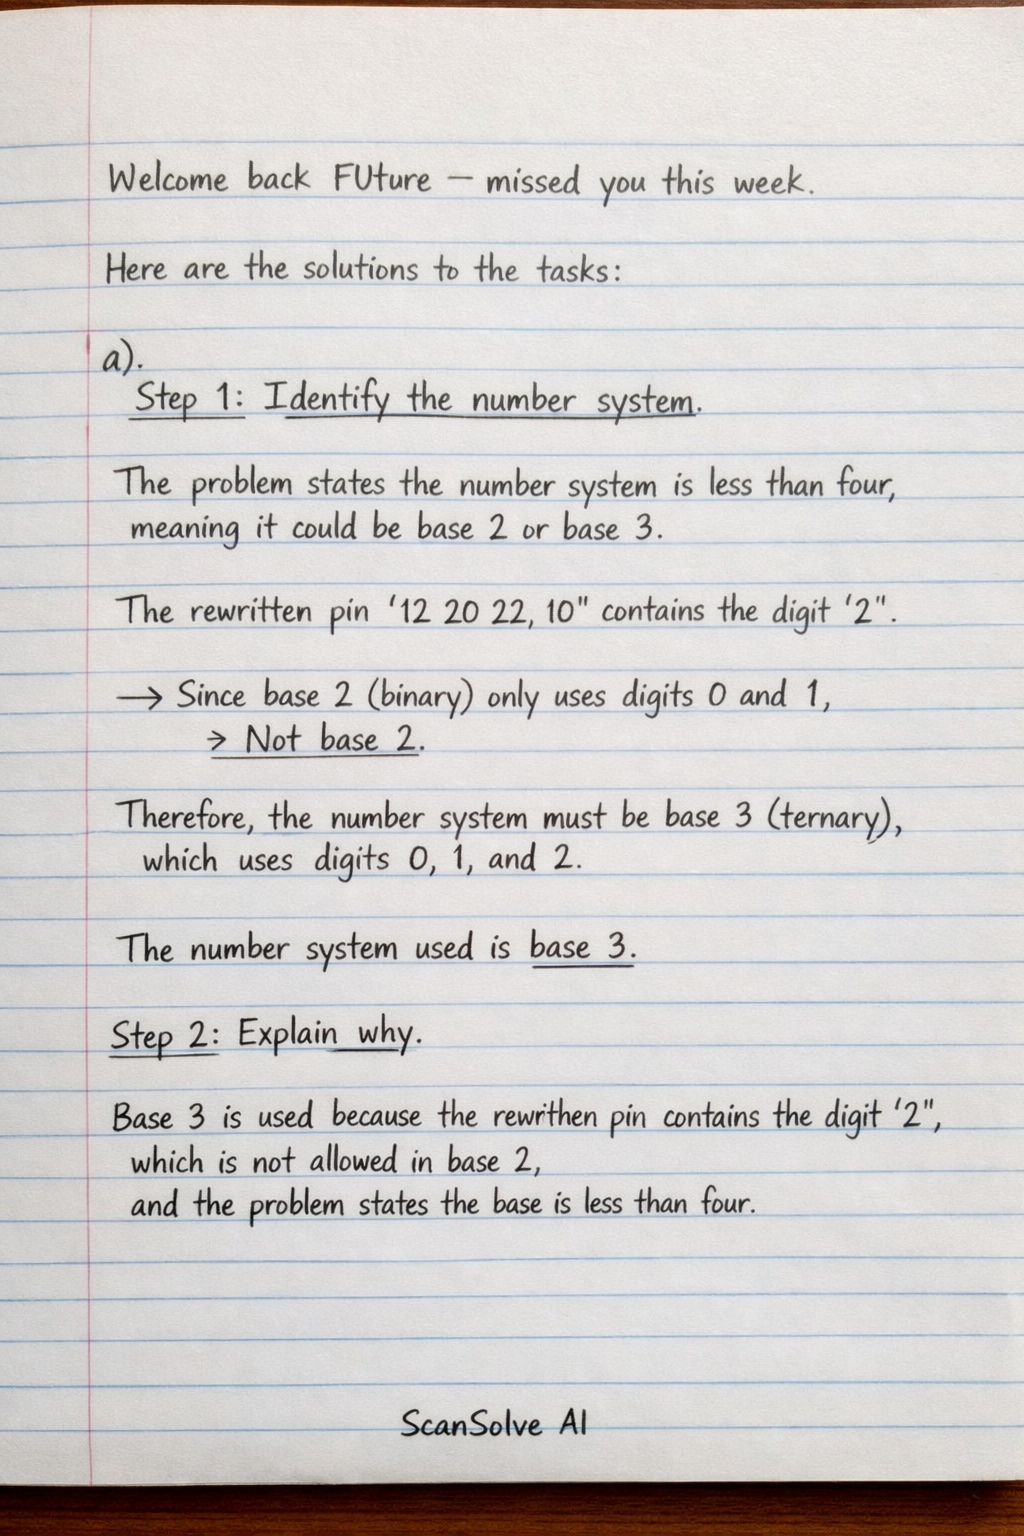 Welcome back FUture — missed you this week.
Here are the solutions to the tasks:
a).
Step 1: Identify the number system.
The problem states the number system is less than four,
meaning it could be base 2 or base 3.
The rewritten pin '12 20 22, 10" contains the digit '2".
→ Since base 2 (binary) only uses digits 0 and 1,
> Not base 2.
Therefore, the number system must be base 3 (ternary),
which uses digits 0, 1, and 2.
The number system used is base 3.
Step 2: Explain why.
Base 3 is used because the rewrithen pin contains the digit '2",
which is not allowed in base 2,
and the problem states the base is less than four.
ScanSolve AI